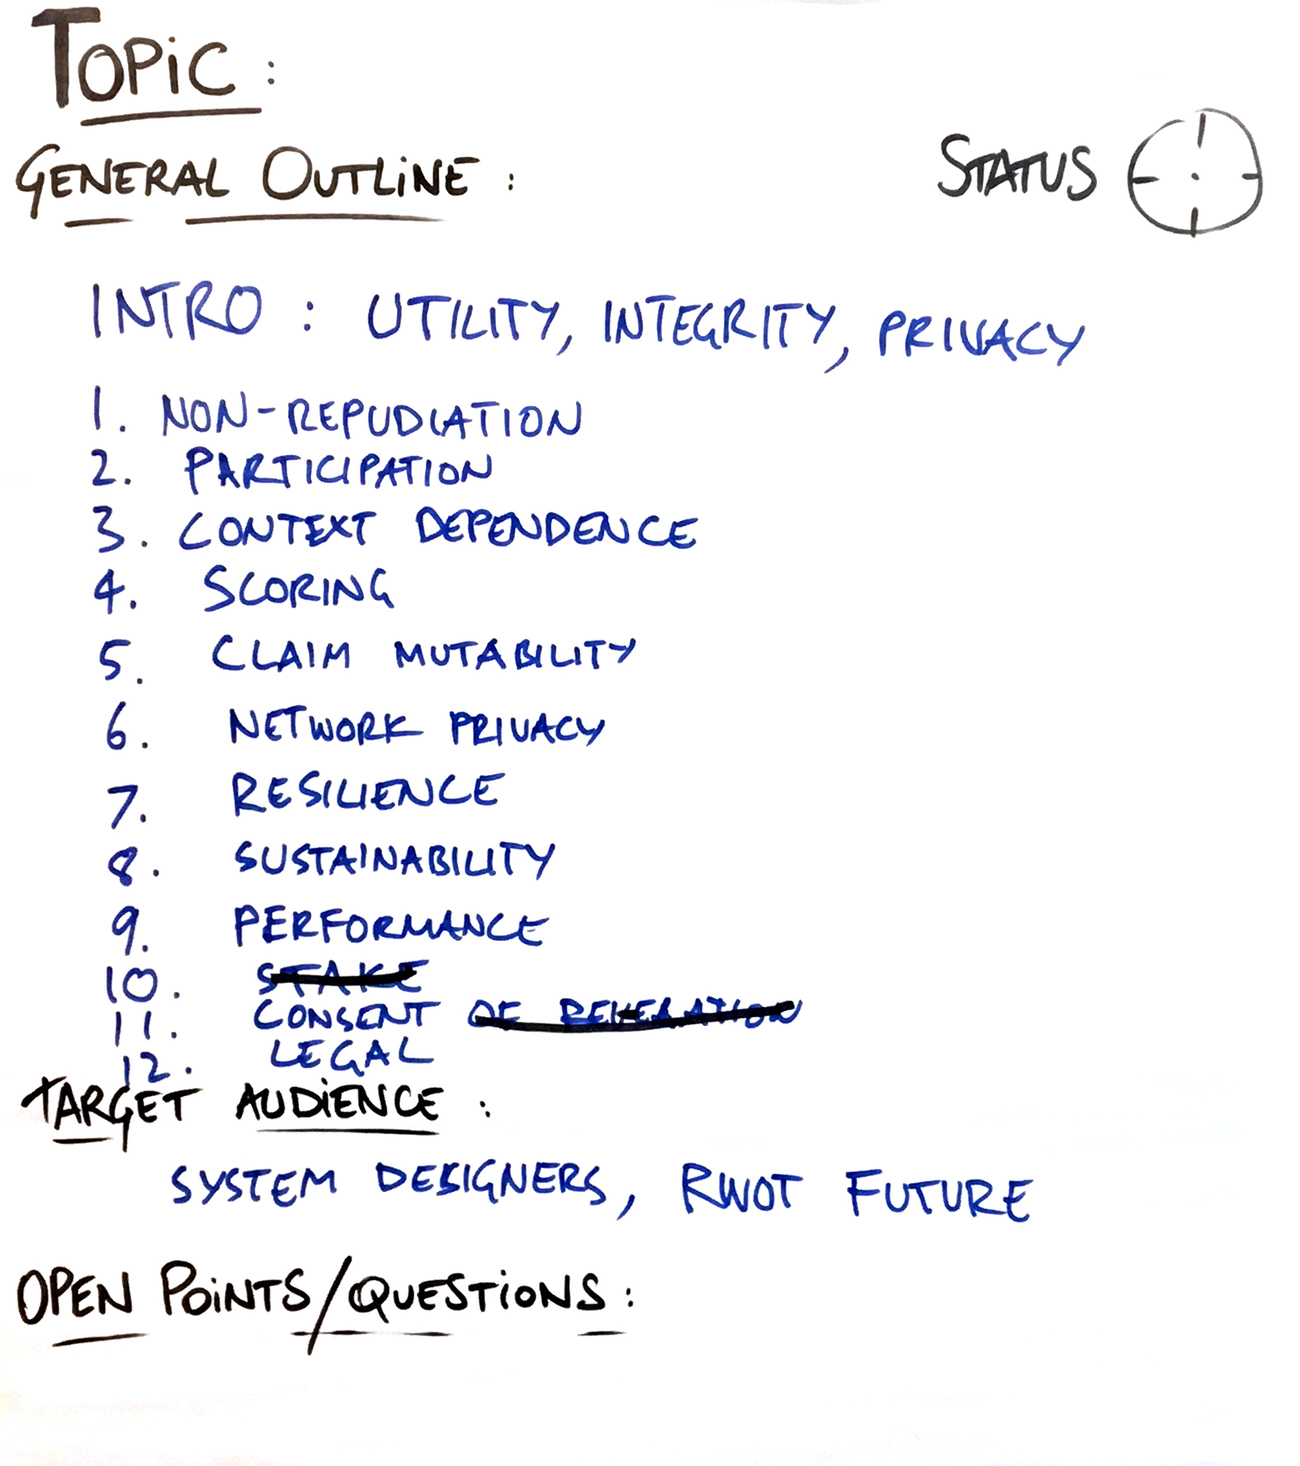 TOPIC :
GENERAL OUTLINE :
STATUS
INTRO : UTILITY, INTEGRITY, PRIVACY
1. NON-REPUDIATION
2. PARTICIPATION
3. CONTEXT DEPENDENCE
4. SCORING
5. CLAIM MUTABILITY
6. NETWORK PRIVACY
7. RESILIENCE
8. SUSTAINABILITY
9. PERFORMANCE
10. STAKE
11. CONSENT OF
12. LEGAL
TARGET AUDIENCE :
SYSTEM DESIGNERS, RWOT FUTURE
OPEN POINTS/QUESTIONS :